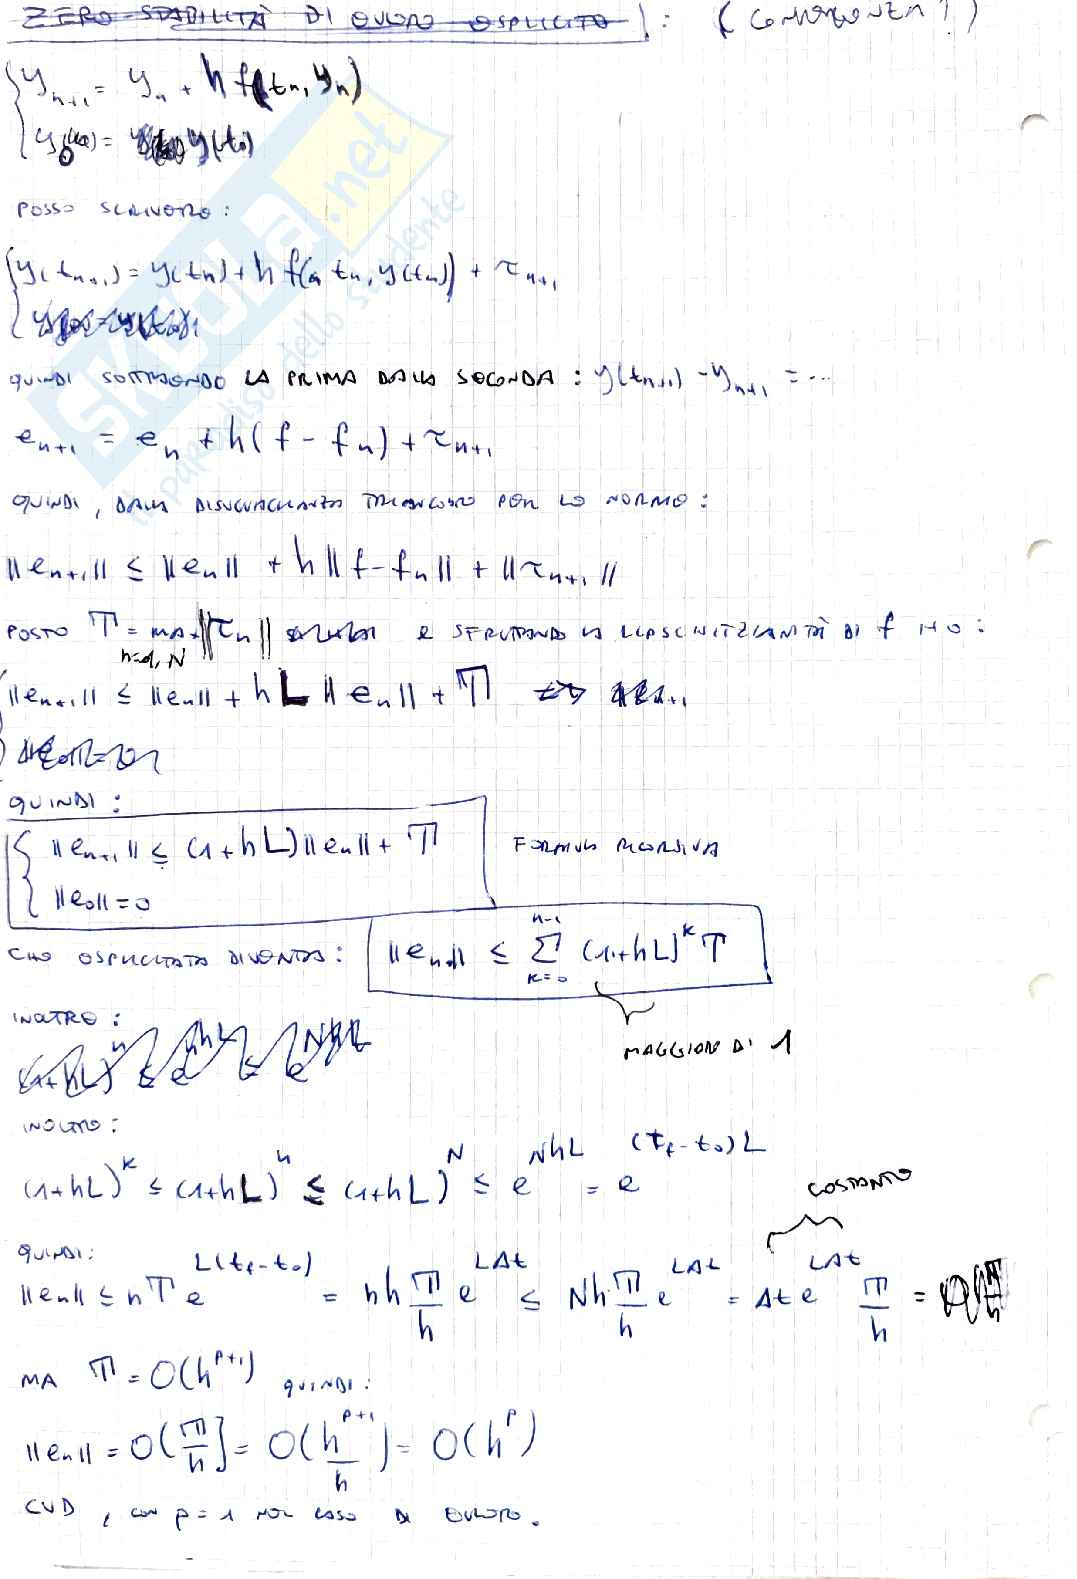 ZERO-STABILITÀ DI EULERO ESPLICITO : (CONVERGENZA?)
y_{n+1} = y_n + h f(t_n, y_n)
y_0 = y(t_0)
POSSO SCRIVERE:
y(t_{n+1}) = y(t_n) + h f(t_n, y(t_n)) + τ_{n+1}
QUINDI SOTTRAENDO LA PRIMA DALLA SECONDA: y(t_{n+1}) - y_{n+1} = ...
e_{n+1} = e_n + h(f - f_n) + τ_{n+1}
QUINDI, DALLA DISUGUAGLIANZA TRIANGOLARE PER LE NORME:
||e_{n+1}|| ≤ ||e_n|| + h||f - f_n|| + ||τ_{n+1}||
POSTO T = max ||τ_n|| E SFRUTTANDO LA LIPSCHITZIANITÀ DI f HO:
n=1,N
||e_{n+1}|| ≤ ||e_n|| + h L ||e_n|| + T
QUINDI:
||e_{n+1}|| ≤ (1+hL)||e_n|| + T FORMULA RICORSIVA
||e_0|| = 0
CHE ESPLICITATA DIVENTA: ||e_n|| ≤ Σ_{k=0}^{n-1} (1+hL)^k T
MAGGIORE DI 1
INOLTRE:
(1+hL)^n ≤ e^{nhL} ≤ e^{NhL}
INOLTRE:
(1+hL)^k ≤ (1+hL)^n ≤ (1+hL)^N ≤ e^{NhL} = e^{(t_f-t_0)L}
COSTANTE
QUINDI:
||e_n|| ≤ n T e^{L(t_f-t_0)} = nh T/h e^{LΔt} ≤ Nh T/h e^{LΔt} = Δt e^{LΔt} T/h =
MA T = O(h^{p+1}) QUINDI:
||e_n|| = O(T/h) = O(h^{p+1}/h) = O(h^p)
CVD, CON p=1 NEL CASO DI EULERO.
SKUOLA.net
il paradiso dello studente